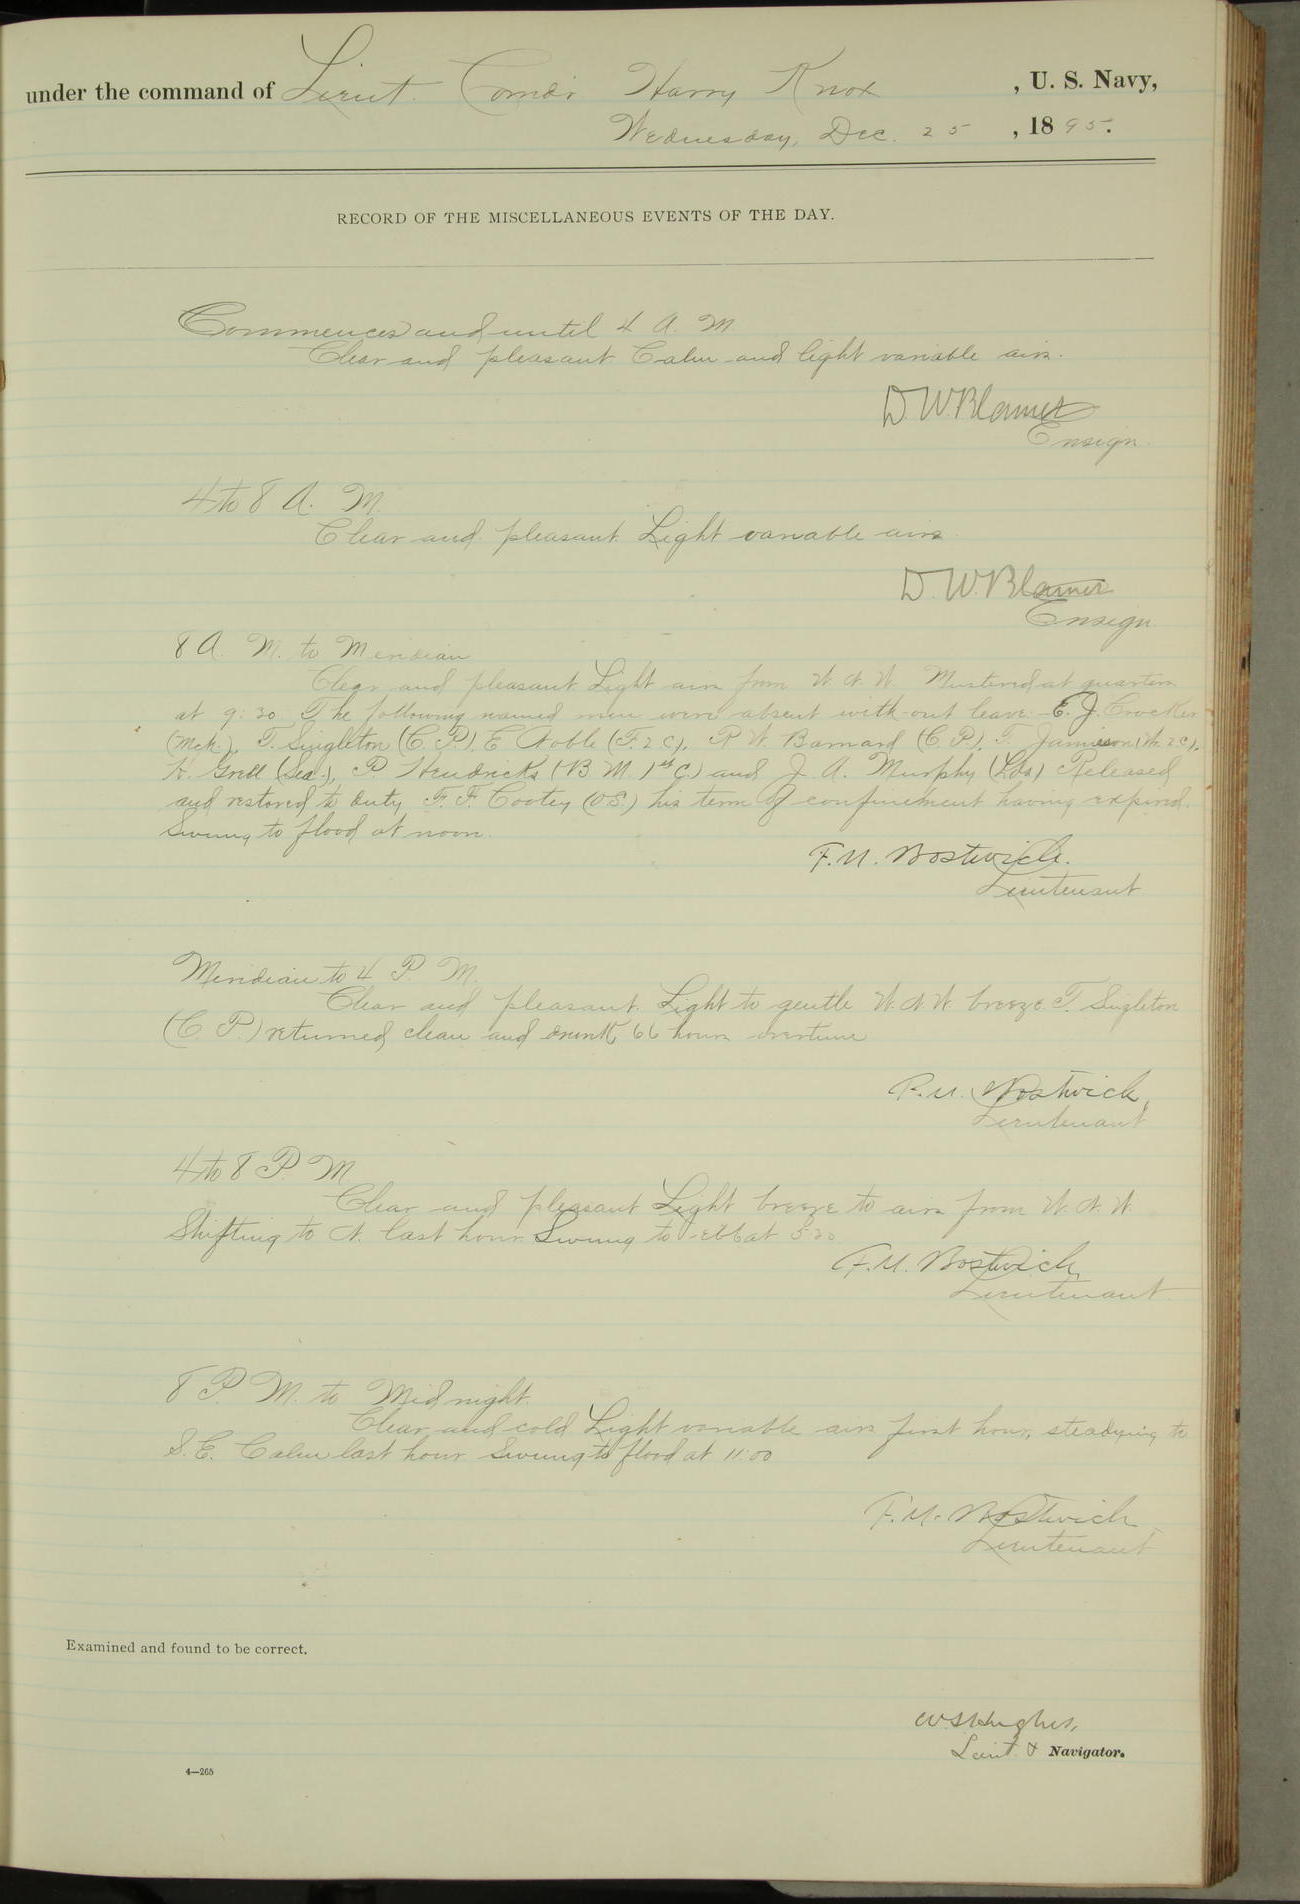 under the command of Lieut. Comdr Harry Knox, U. S. Navy,
Wednesday, Dec. 25, 1895.
RECORD OF THE MISCELLANEOUS EVENTS OF THE DAY.
Commences and until 4 A. M
Clear and pleasant. Calm and light variable airs.
D. W. Blamer
Ensign.
4 to 8 A. M.
Clear and pleasant. Light variable airs
D. W. Blamer
Ensign
8 A. M. to Meridian
Clear and pleasant Light airs from W. N. W. Mustered at quarters
at 9:30 The following named men were absent with-out leave. E. J. Crocker
(Mch.), T. Singleton (C. P.), E Noble (F. 2 C), R W. Barnard (C. P.), T. Jamieson (W. 2 C),
(Sea.), P Hendricks (B M. 1st C.) and J. A. Murphy (Lds) Released
and restored to duty F. F. Cootey (O.S.) his term of confinement having expired.
Swung to flood at noon.
F. M. Bostwick.
Lieutenant
Meridian to 4 P. M.
Clear and pleasant. Light to gentle W. N. W. breeze. T. Singleton
(C. P.) returned clean and drunk, 66 hours overtime
F. M. Bostwick,
Lieutenant
4 to 8 P. M
Clear and pleasant Light breeze to airs from W. N. W.
Shifting to N. last hour. Swung to ebb at 5 20
F. M. Bostwick,
Lieutenant
8 P. M. to Midnight.
Clear and cold Light variable airs first hour, steadying to
S. E. Calm last hour Swung to flood at 11:00
F. M. Bostwick
Lieutenant
Examined and found to be correct.
W S Hughes,
Lieut. & Navigator.
4—265